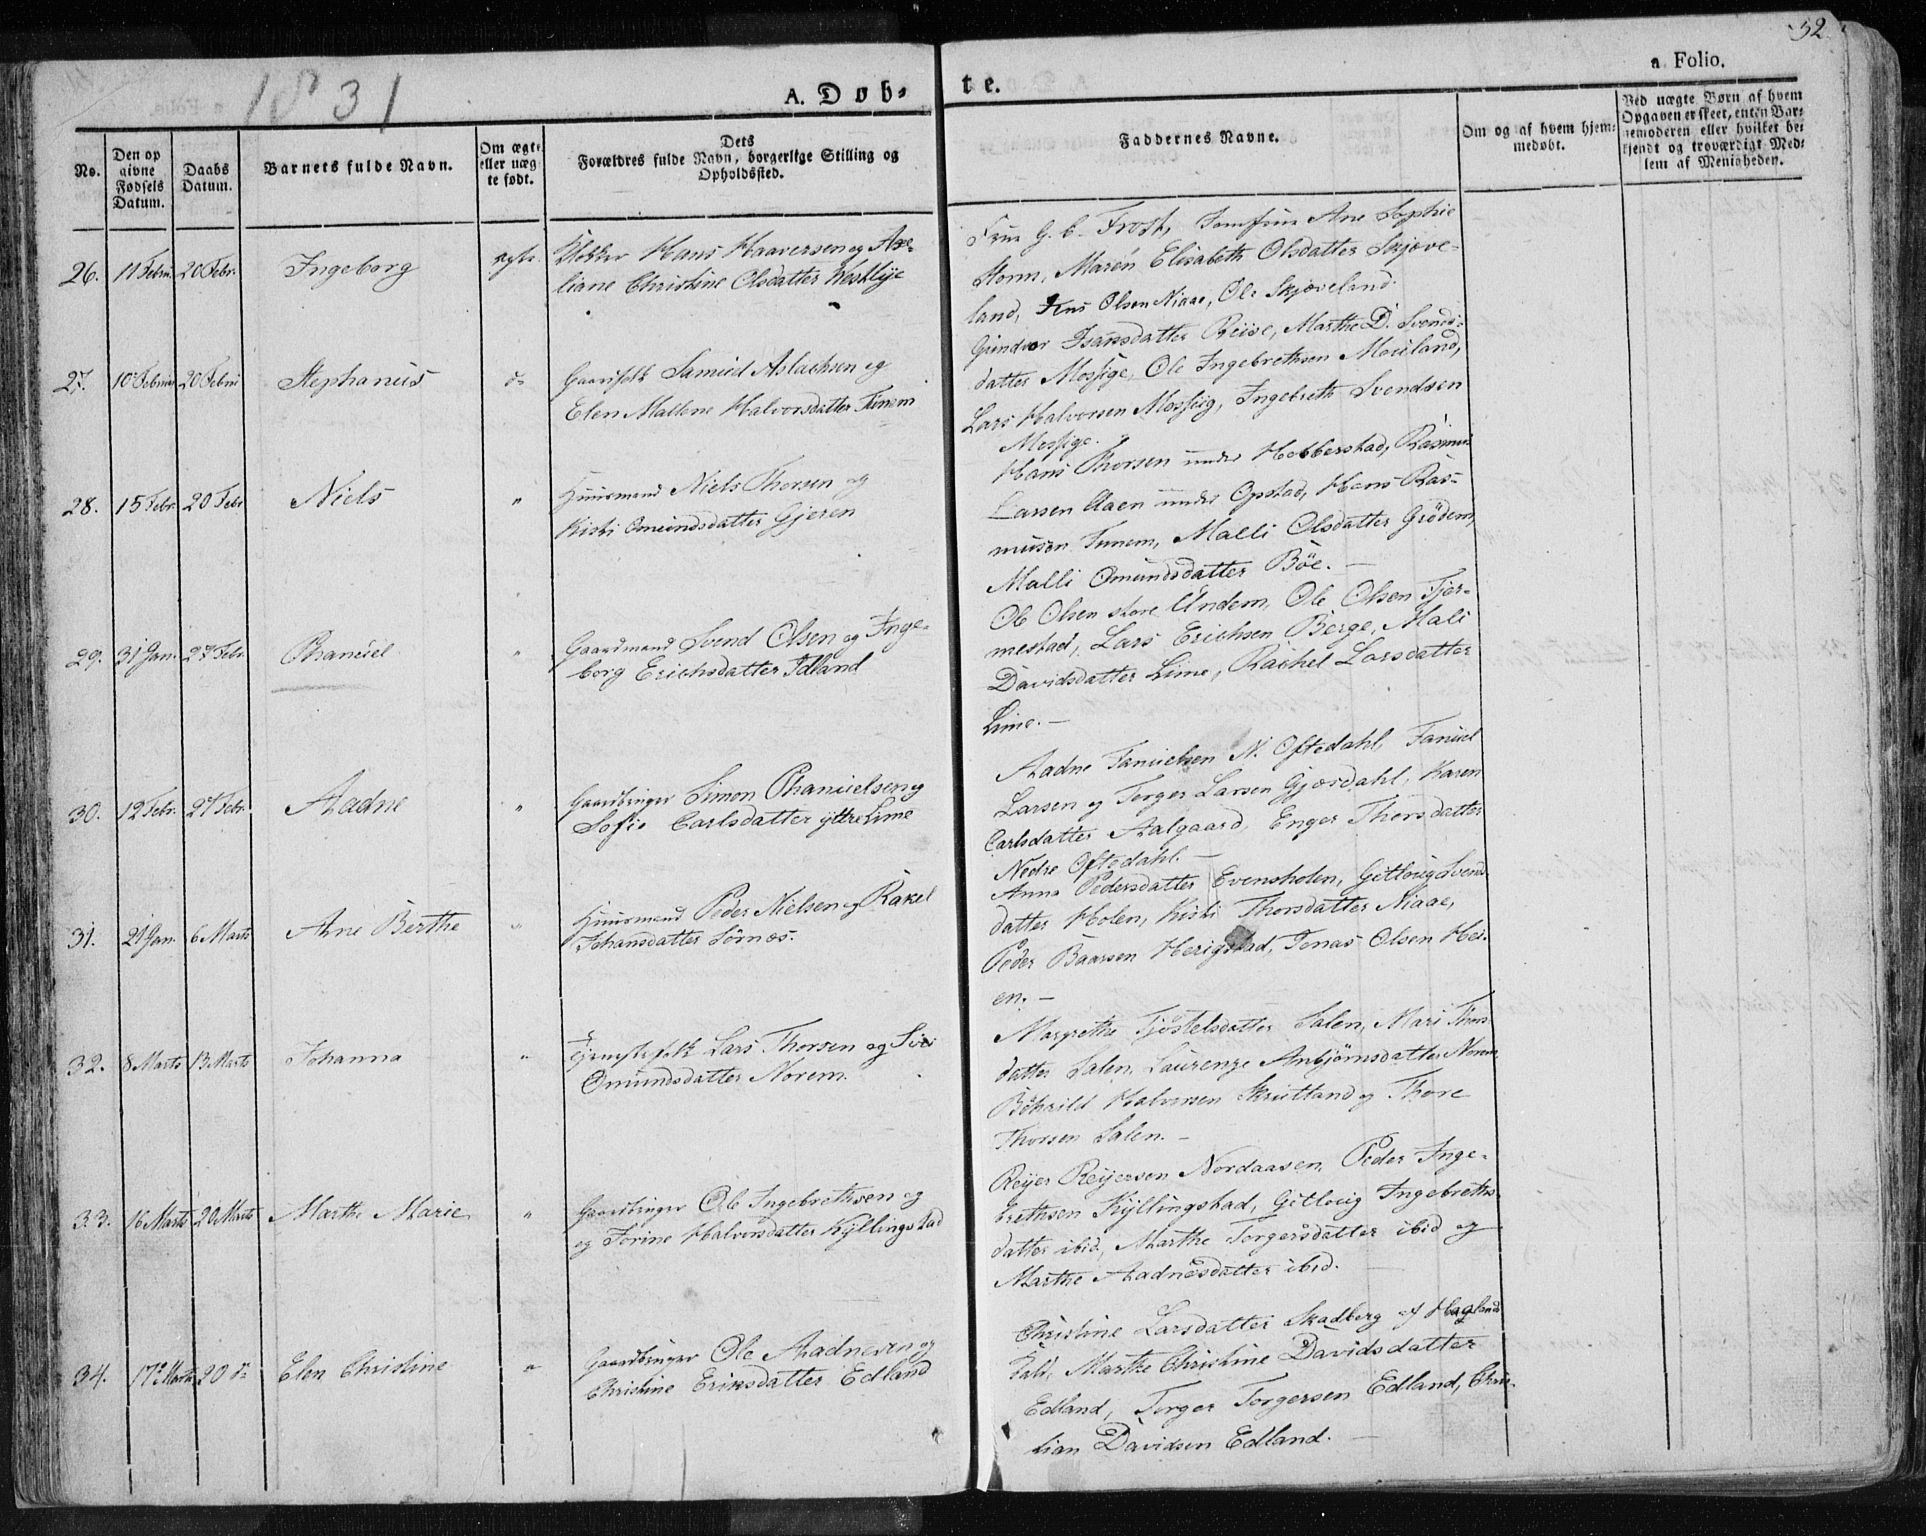 1831
A. Døb-
te.
32
a. Folio.
No.
Den op
givne
Fødsels
Datum.
Daabs
Datum.
Barnets fulde Navn.
Om ægte
eller uæg
te født.
Dets
Forældres fulde Navn, borgerlige Stilling og
Opholdssted.
Faddernes Navne.
Om og af hvem hjem-
medøbt.
Ved uægte Børn af hvem
Opgaven er skeet, enten Bar-
nemoderen eller hvilket be-
kjendt og troværdigt Med-
lem af Menigheden.
26. 11 Febru. 20 Febr. Ingeborg ægte. Klokker Hans Haaversen og Axe-
liane Christine Olsdatter Westlye
Frue G. C. Frost, Jomfrue Ane Sophie
Storm, Maren Elisabeth Olsdatter Skjæve-
land, Jens Olsen Niaae, Ole Skjæveland.
27. 10 Februar 20 Febru Stephanus do Gaardfolk Samuel Aslachsen og
Elen Mallene Halvorsdatter Tunem
Gundvor Isansdatter Reise, Marthe D. Svends-
datter Mossige, Ole Ingebrethsen Mouland,
Lars Halvorsen Mossig, Ingebreth Svendsen
Mossige.
28. 15 Febr. 20 Febr Niels " Huusmand Niels Thorsen og
Kisti Omundsdatter Gjeren
Hans Thorsen under Hobberstad, Rasmus
Larsen Aaen under Opstad, Hans Ras-
musen Tunem, Malli Olsdatter Grödem,
Malli Omundsdatter Böe. —
29. 31 Jan. 27 Febr. Phanuel " Gaardmand Svend Olsen og Inge-
borg Erichsdatter Idland
Ole Olsen store Undem, Ole Olsen Tjer-
mestad, Lars Erichsen Berge, Mali
Davidsdatter Lime, Rachel Larsdatter
Lime. —
30. 12 Febr. 27 Febr. Aadne " Gaardbruger Simon Phanuelsen og
Sofie Carlsdatter yttre Lime
Aadne Fanuelsen N. Oftedahl, Fanuel
Larsen og Torger Larsen Gjæsdahl, Karen
Carlsdatter Aalgaard, Enger Thorsdatter
Nedre Oftedahl. —
31. 21 Jan. 6 Marts Ane Berthe " Huusmand Peder Nielsen og Rakel
Johansdatter Sörnæs.
Anna Pedersdatter Evensholen, Gitloug Svends
datter Holen, Kisti Thorsdatter Niaae,
Peder Baarsen Herigstad, Jonas Olsen Hei-
en. —
32. 8 Marts 13 Marts Johanna " Lars Thorsen og Siri
Omundsdatter Norem.
Margrethe Tjöstelsdatter Salen, Mari Thors
datter Salen, Laurenze Anbjörnsdatter Norem
Halvorsen Skrutland og Thore
Thorsen Salen. —
33. 16 Marts 20 Marts Marthe Marie " Gaardbruger Ole Ingebrethsen og
og Jorine Halvorsdatter Kyllingstad
Reyer Reyersen Nordaasen, Peder Inge-
brethsen Kyllingstad, Gitloug Ingebreths-
datter ibid, Marthe Torgersdatter ibid og
Marthe Aadnesdatter ibid.
34. 17de Marts 20 do Elen Christine " Gaardbruger Ole Aadnesen og
Christine Eriksdatter Edland
Christine Larsdatter Skadberg af Haglands
Marthe Christine Davidsdatter
Edland, Torger Torgersen Edland, Chris-
tian Davidsen Edland. —